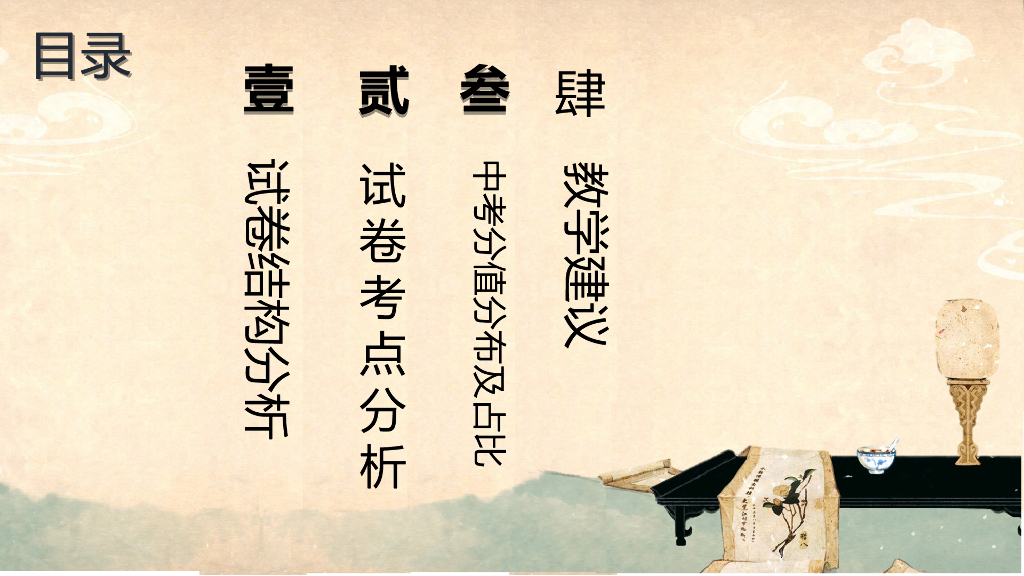 目录
壹
试卷结构分析
贰
试卷考点分析
叁
中考分值分布及占比
肆
教学建议